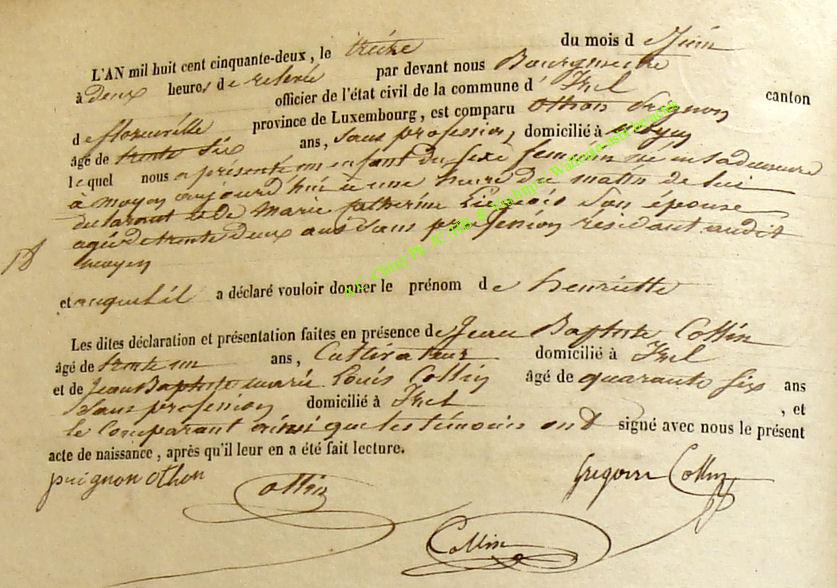 L'AN mil huit cent cinquante-deux, le treize du mois d e Juin
à deux heures de relevée par devant nous Bourgmestre
officier de l'état civil de la commune d' Izel canton
d e florenville province de Luxembourg, est comparu Othon
âgé de trente six ans, sans profession, domicilié à Moyen
lequel nous a présenté un enfant du sexe feminin né en sa demeure
à moyen aujourd'hui à une heure du matin de lui
declarant et de Marie Catherine Liégeois son épouse
agée de trente deux ans sans profession résidant audit
18
moyen
et auquel il a déclaré vouloir donner le prénom d e henriette
Les dites déclaration et présentation faites en présence de Jean Baptiste Collin
âgé de trente un ans, Cultivateur domicilié à Izel
et de Jean Baptiste marie Louis Collin âgé de quarante six ans
sans profession domicilié à Izel , et
le Comparant ainsi que les témoins ont signé avec nous le présent
acte de naissance, après qu'il leur en a été fait lecture.
puignon Othon Collin Gregoire Collin
Collin